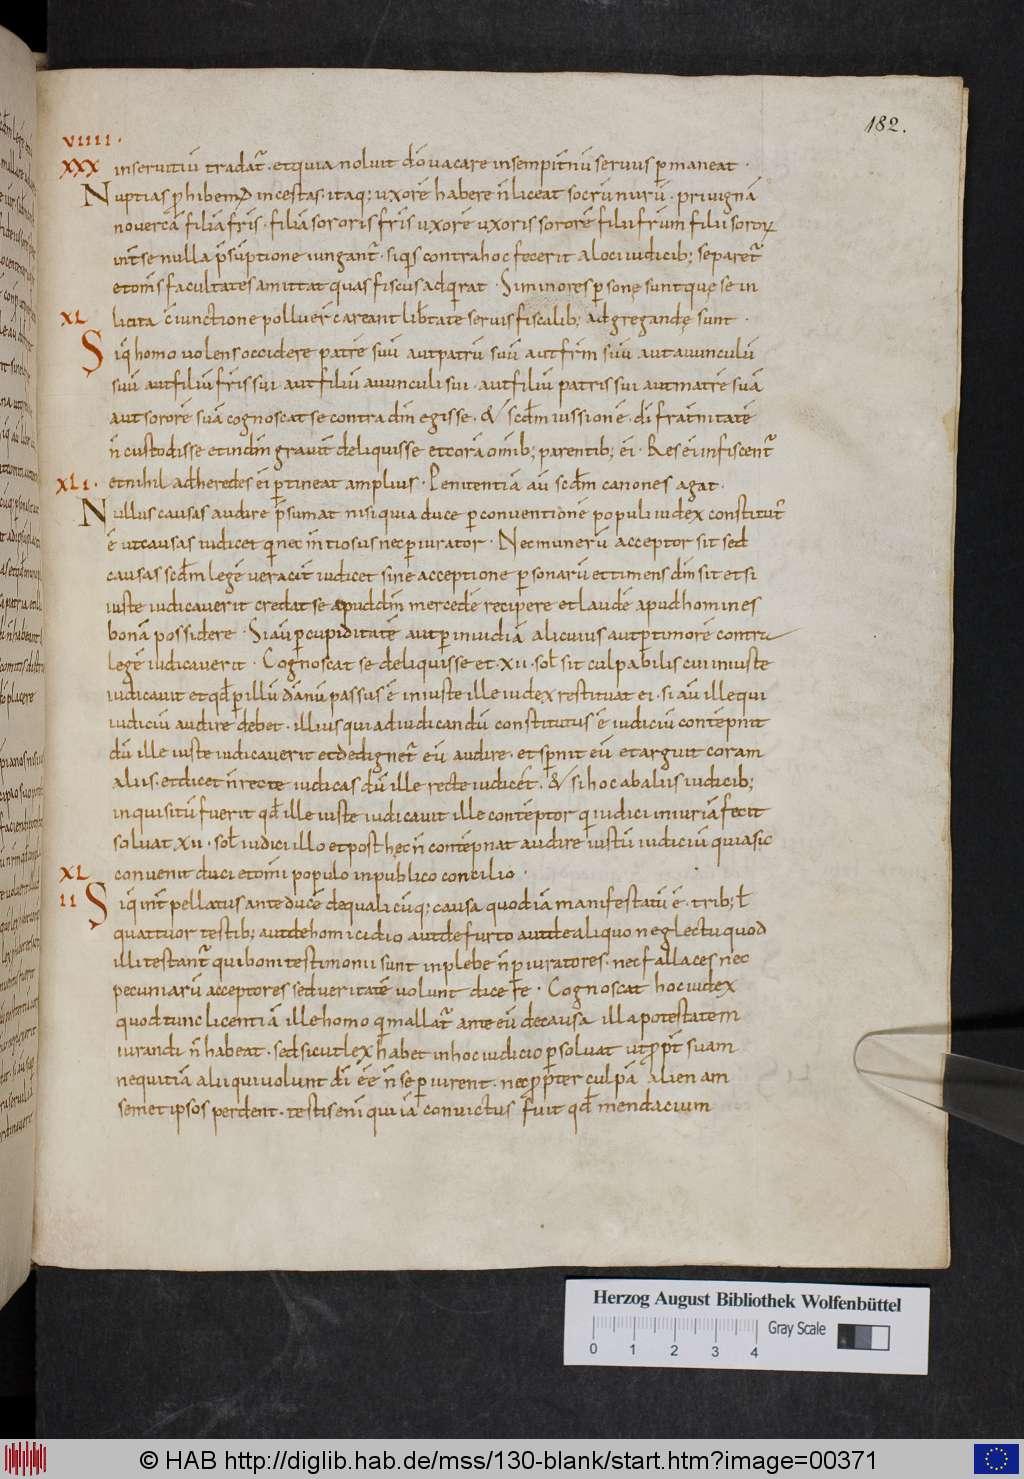 182.
VIIII.
XXX inservitiū tradat̄. etquia noluit dō vacare insempit̄nū servus pmaneat.
Nuptias phibem incestas. itaq; uxorē habere n̄ liceat socrū nurū. privignā
novercā filiā fr̄is. filiā sororis fr̄is uxorē uxoris sororē filii fr̄um filii soror
int̄ se nulla p̄sūptione iungant̄. siq̇s contra hoc fecerit a loci iudicib; separet̄
et om̄s facultates amittat quas fiscus adq̇rat. Si minores psonę sunt quę se in
XL licita c̄iunctione polluer̄ careant lib̄tate servis fiscalib; adgregandę sunt.
Siq̇ homo volens occidere patrē suū aut patrū suū aut fr̄m suū aut avunculū
suū aut filiū fr̄is sui. aut filiū avunculi sui. aut filiū patris sui aut matrē suā
aut sororē suā cognoscat se contra dm̄ egisse. & scd̄m iussionē di fraternitatē
n̄ custodisse et in dm̄ gravit̄ deliquisse et corā om̄ib; parentib; ei. Res ei infiscent̄
XLI. et nihil ad heredes ei p̄tineat amplius. Penitentiā aū scd̄m canones agat.
Nullus causas audire p̄sumat nisi quia duce p conventionē populi iudex constitut̄
ē ut causas iudicet q̇ nec mentiosus nec piurator. Nec munerū acceptor sit sed
causas scd̄m legē veracit̄ iudicet sine acceptione psonarū et timens dm̄ sit et si
iuste iudicaverit credat se apud dm̄ mercedē recipere et laudē apud homines
bonā possidere. Si aū p cupiditatē aut p invidiā alicuius aut p timorē contra
legē iudicaverit. Cognoscat se deliquisse et. XII. sol̄ sit culpabilis cui iniuste
iudicavit et qd̄ p illū dānū passus ē iniuste ille iudex restituat ei. si aū ille qui
iudiciū audire debet. illius qui ad iudicandū constitutus ē iudiciū contēpnit
dū ille iuste iudicaverit et dedignet̄ eū audire. et spnit eū et arguit coram
aliis. et dicet n̄ recte iudicas dū ille recte iudicet. & si hoc ab aliis iudicib;
inquisitū fuerit qd̄ ille iuste iudicavit ille contēptor q̇ iudici iniuriā fecit
solvat XII. sol̄ iudici illo et post hęc n̄ contēpnat audire iustū iudiciū quia sic
XL convenit duci et om̄i populo in publico concilio.
II Siq̇ int̄pellatus ante ducē de quali cūq; causa quod iā manifestatū ē. trib; l̄
quattuor testib; aut de homicidio aut de furto aut de aliquo neglectu quod
illi testant̄ qui boni testimonii sunt in plebe n̄ piuratores. nec fallaces nec
pecuniarū acceptores sed veritatē volunt dicere. Cognoscat hoc iudex
quod tunc licentiā ille homo q̇ mallat̄ ante eū de causa illa potestatem
iurandi n̄ habeat. sed sicut lex habet in hoc iudicio psolvat ut ppt̄ suam
nequitiā alii qui volunt di ēē n̄ se piurent. nec ppter culpā alienam
semet ipsos perdent. testis enī qui iā convictus fuit qd̄ mendacium
Herzog August Bibliothek Wolfenbüttel
Gray Scale
0 1 2 3 4
© HAB http://diglib.hab.de/mss/130-blank/start.htm?image=00371